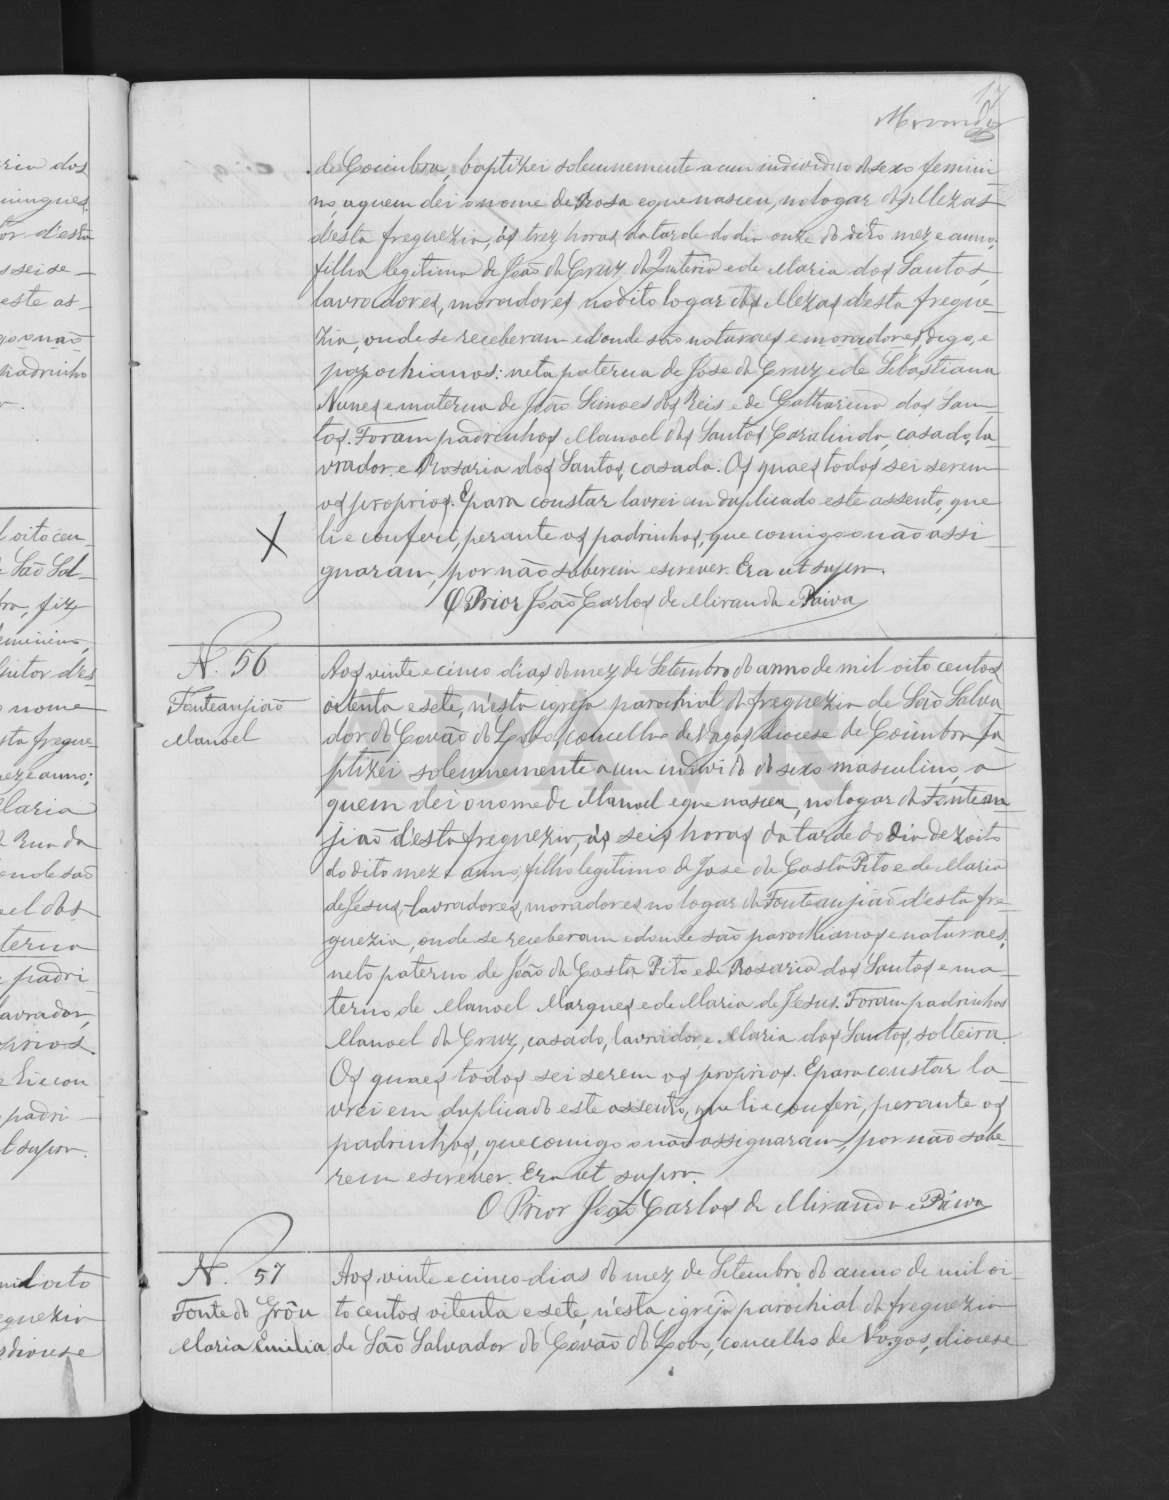 17
Miranda
de Coimbra, baptizei solemnemente a um individuo do sexo femini-
no, a quem dei o nome de Rosa e que nasceu, no logar das Mezas
d'esta freguezia, ás trez horas da tarde do dia onze do dito mez e anno,
filha legitima de João da Cruz da e de Maria dos Santos,
lavradores, moradores no dito logar das Mezas d'esta fregue-
zia, onde se receberam e donde são naturaes e moradores, digo, e
parochianos: neta paterna de José da Cruz e de Sebastiana
Nunes e materna de João Simões dos Reis e de Catharina dos San-
tos. Foram padrinhos Manoel dos Santos Caralinda, casado, la-
vrador e Rosaria dos Santos, casada. Os quaes todos sei serem
os proprios. E para constar lavrei em duplicado este assento, que
li e conferi, perante os padrinhos, que comigo o não assi-
gnaram, por não saberem escrever. Era ut supra.
O Prior João Carlos de Miranda e Paiva
N. 56
Fonteanjião
Manoel
Aos vinte e cinco dias do mez de Setembro do anno de mil oito centos
oitenta e sete, n'esta igreja parochial da freguezia de São Salva
dor do Covão do Lobo, concelho de Vagos, diocese de Coimbra, ba-
ptizei solemnemente a um individo do sexo masculino, a
quem dei o nome de Manoel e que nasceu, no logar da Fontean
jião d'esta freguezia, ás seis horas da tarde do dia dezoito
do dito mez e anno, filho legitimo de José da Costa Pito e de Maria
de Jesus, lavradores, moradores no logar da Fonteanjião d'esta fre-
guezia, onde se receberam e donde são parochianos e naturaes,
neto paterno de João da Costa Pito e de Rosaria dos Santos e ma-
terno de Manoel Marques e de Maria de Jesus. Foram padrinhos
Manoel da Cruz, casado, lavrador e Maria dos Santos, solteira.
Os quaes todos sei serem os proprios. E para constar la-
vrei em duplicado este assento, que li e conferi, perante os
padrinhos, que comigo o não assignaram, por não sabe-
rem escrever. Era ut supra.
O Prior João Carlos de Miranda e Paiva
N. 57
Fonte do Grôu
Maria Emilia
Aos vinte e cinco dias do mez de Setembro do anno de mil oi-
to centos oitenta e sete, n'esta igreja parochial da freguezia
de São Salvador do Covão do Lobo, concelho de Vagos, diocese
ADAVR